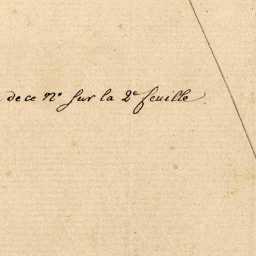 de ce N.º sur la 2.e feuille.